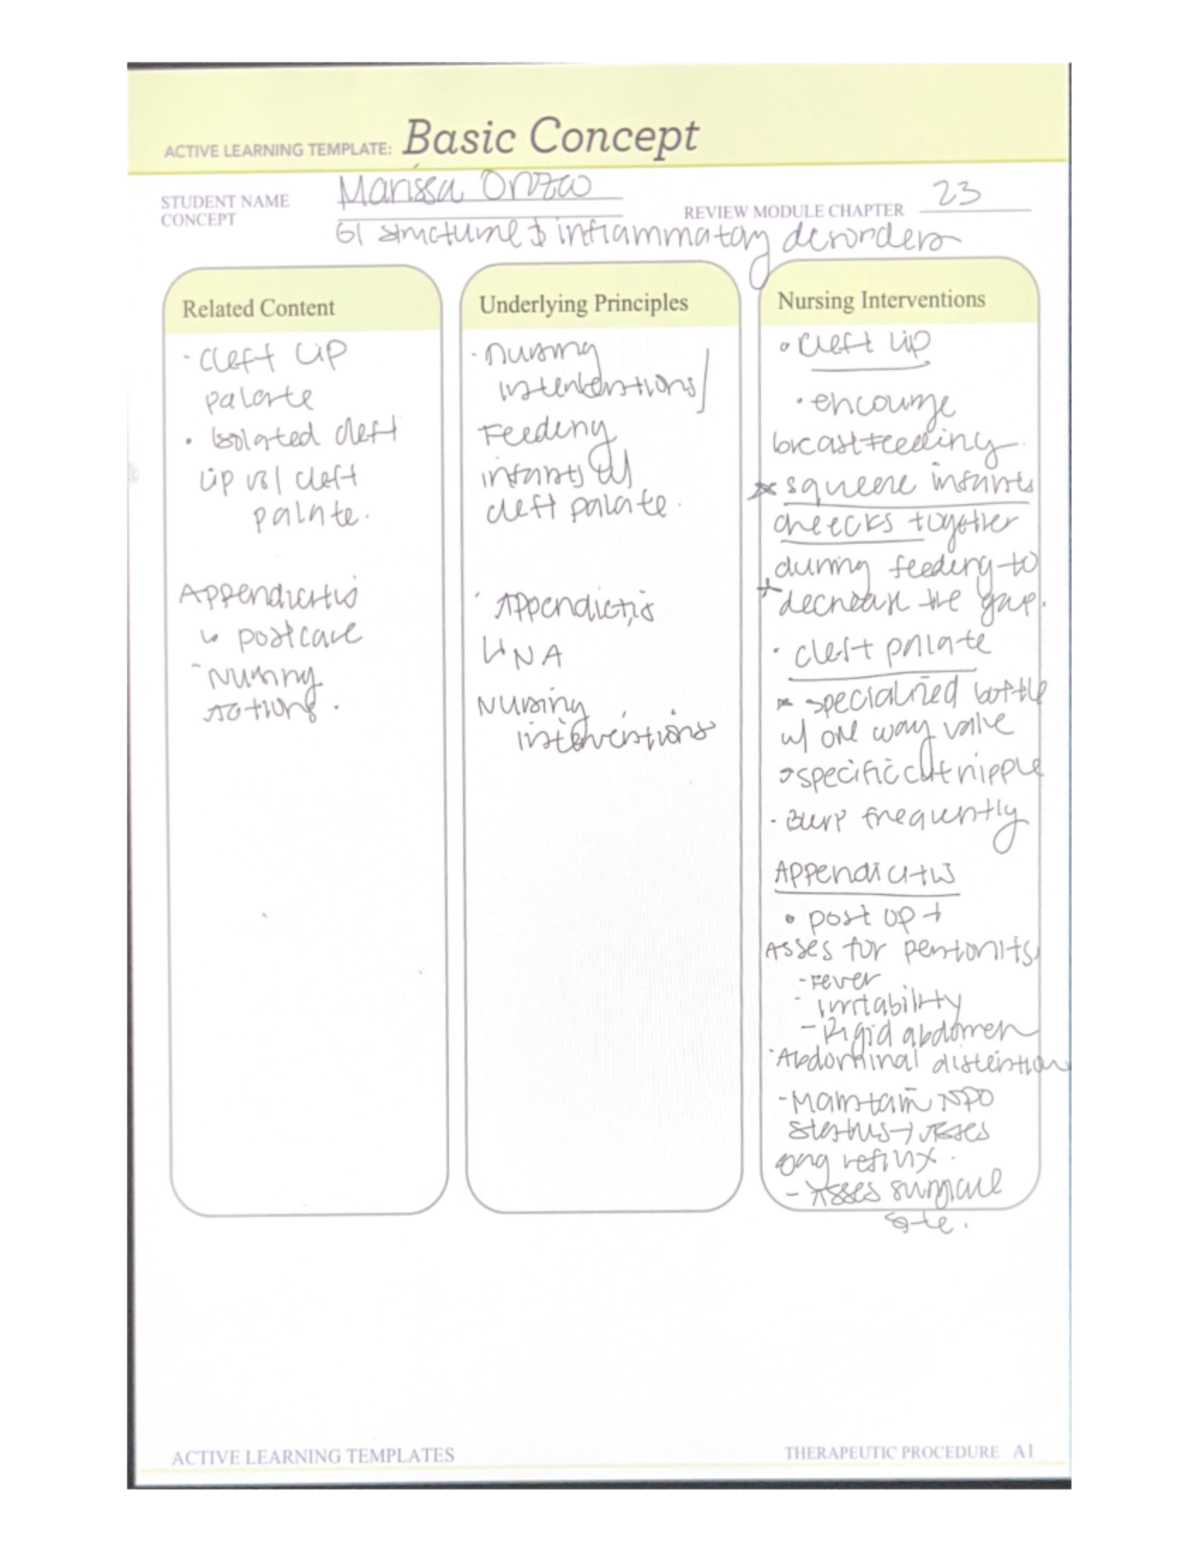 ACTIVE LEARNING TEMPLATE: Basic Concept
STUDENT NAME Marissa Orozco
CONCEPT GI structure & inflammatory disorders
REVIEW MODULE CHAPTER 23
Related Content
· cleft lip
palate
· Isolated cleft
lip vs/ cleft
palate.
Appendicitis
↳ postcare
- Nursing
actions.
Underlying Principles
· Nursing
interventions/
Feeding
infants w/
cleft palate.
· Appendicitis
↳ NA
Nursing
interventions
Nursing Interventions
• cleft lip
• encourage
breastfeeding.
* squeeze infants
cheecks together
during feeding to
* decrease the gap.
· cleft palate
* specialized bottle
w/ one way valve
→ specific cut nipple
· Burp frequently
Appendicitis
• post op →
Asses for peritonitis
- Fever
- irritability
- Rigid abdomen
· Abdominal distention
- Maintain NPO
status → Asses
reflux.
- Asses surgical
site.
ACTIVE LEARNING TEMPLATES
THERAPEUTIC PROCEDURE A1